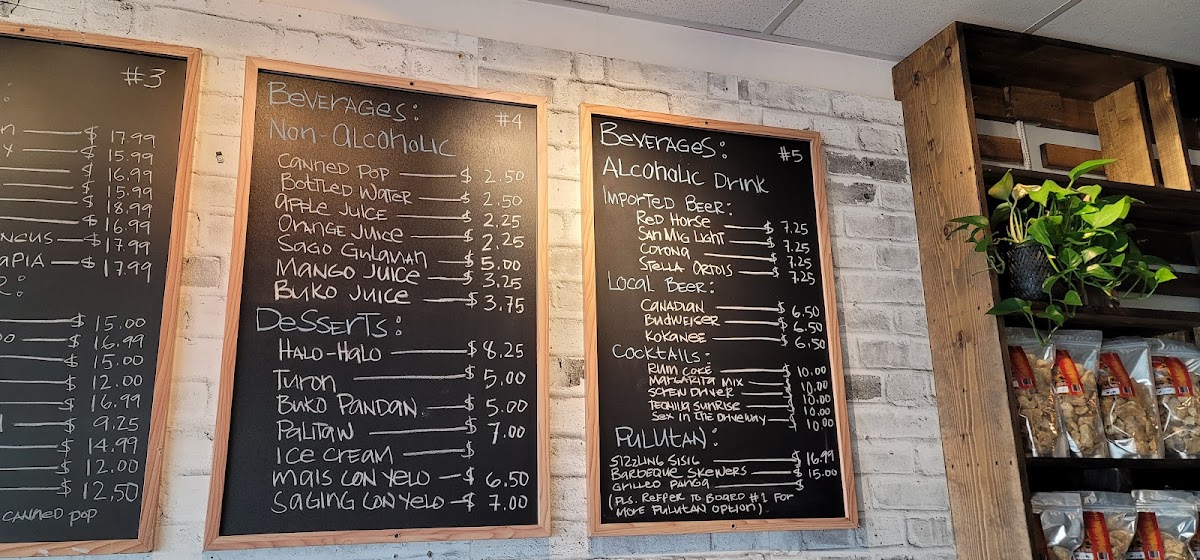 #3
$ 17.99
$ 15.99
$ 16.99
$ 15.99
$ 18.99
$ 16.99
$ 17.99
APIA $ 17.99
$ 15.00
$ 16.99
$ 15.00
$ 12.00
$ 16.99
$ 9.25
$ 14.99
$ 12.00
$ 12.50
CANNED POP
Beverages: #4
Non-Alcoholic
Canned Pop $ 2.50
Bottled Water $ 2.50
Apple Juice $ 2.25
Orange Juice $ 2.25
Sago Gulaman $ 5.00
Mango Juice $ 3.25
Buko Juice $ 3.75
Desserts:
Halo-Halo $ 8.25
Turon $ 5.00
Buko Pandan $ 5.00
Palitaw $ 7.00
Ice Cream $
Mais Con Yelo $ 6.50
Saging Con Yelo $ 7.00
Beverages: #5
Alcoholic Drink
Imported Beer:
Red Horse $ 7.25
San Mig Light $ 7.25
Corona $ 7.25
Stella Ortois $ 7.25
Local Beer:
Canadian $ 6.50
Budweiser $ 6.50
Kokanee $ 6.50
Cocktails:
Rum Coke $ 10.00
Margarita Mix $ 10.00
Screw Driver $ 10.00
Tequila Sunrise $ 10.00
Sex in the Driveway $ 10.00
Pulutan:
Sizzling Sisig $ 16.99
Barbeque Skewers $ 15.00
Grilled Panga $
(Pls. Reffer to Board #1 for
more Pulutan option)